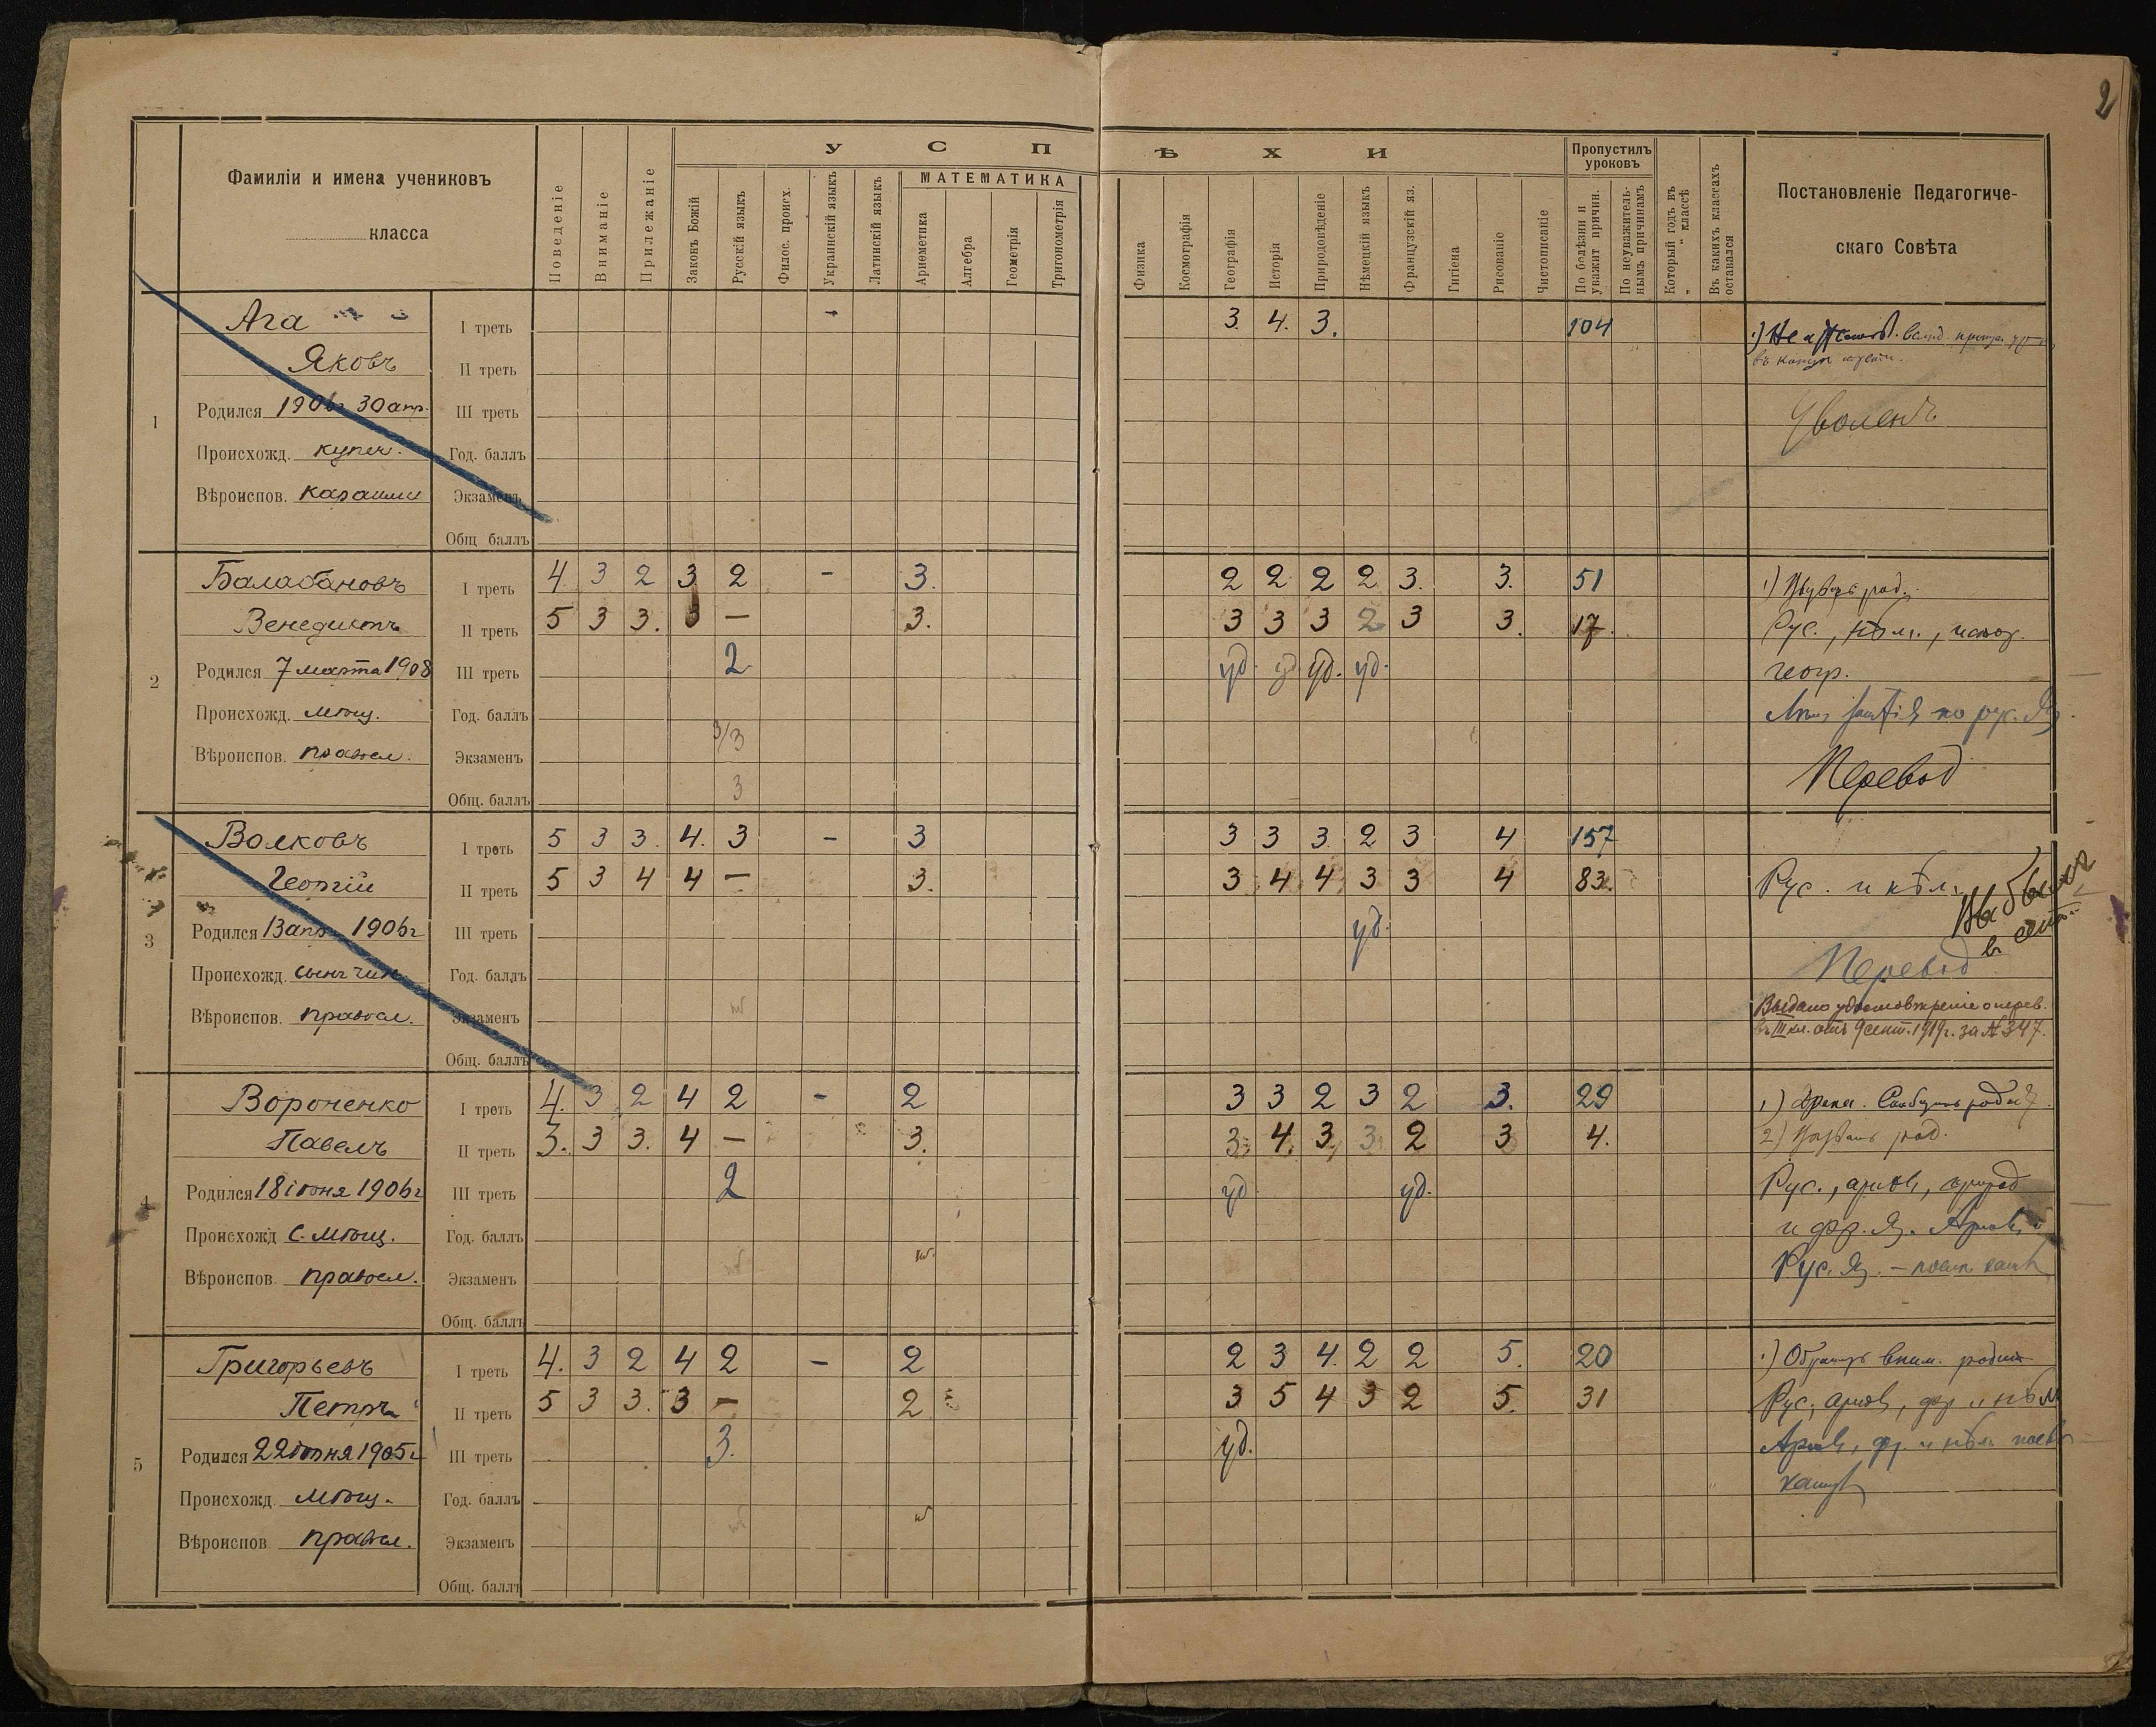 2
У С П Ѣ Х И
Фамиліи и имена учениковъ
класса
Поведеніе
Вниманіе
Прилежаніе
Законъ Божій
Русскій языкъ
Филос. происх.
Украинскій языкъ
Латинскій языкъ
МАТЕМАТИКА
Ариѳметика
Алгебра
Геометрія
Тригонометрія
Физика
Космографія
Географія
Исторія
Природовѣденіе
Нѣмецкій языкъ
Французскій яз.
Гигіена
Рисованіе
Чистописаніе
Пропустилъ уроковъ
По болѣзни и уважит причин.
По неуважитель-нымъ причинамъ
Который годъ въ „ “ классѣ
Въ какихъ классахъ оставался
Постановленіе Педагогиче-
скаго Совѣта
1
Ага I треть - 3. 4. 3. 104
Яковъ II треть
Родился 1906г 30 апр. III треть
Уволенъ
Происхожд. купеч. Год. баллъ
Вѣроиспов. караим Экзаменъ
Общ баллъ
2
Балабановъ I треть 4 3 2 3 2 - 3. 2 2 2 2 3. 3. 51
Венедиктъ II треть 5 3 3. 3 — 3. 3 3 3 2 3 3. 17.
Рус., нѣм., истор.
Родился 7 марта 1908 III треть 2 уд. уд. уд. уд.
геогр.
Происхожд. мѣщ. Год. баллъ
по рус. яз.
Вѣроиспов. правосл. Экзаменъ 3/3
Перевод
Общ. баллъ 3
3
Волковъ I треть 5 3 3. 4. 3 - 3 3 3 3 2 3 4 157
Георгій II треть 5 3 4 4 — 3. 3 4 4 3 3 4 83.
Рус. и нѣм.
Выбылъ
в сент.
Родился 13 апр. 1906г III треть уд.
Происхожд. сынъ чин. Год. баллъ
Перевод
Вѣроиспов. правосл. Экзаменъ
Выдано удостовѣреніе о перев.
въ III кл. отъ 9 сент. 1919г. за № 347.
Общ. баллъ
4
Вороненко I треть 4. 3 2 4 2 - 2 3 3 2 3 2 3. 29
Павелъ II треть 3. 3 3. 4 — 3. 3 4 3 3 2 3 4.
Родился 18 іюня 1906г III треть 2 уд. уд.
Рус., ариѳ., природ
Происхожд С. мѣщ. Год. баллъ
и фр. яз. Ариѳ. и
Вѣроиспов. правосл. Экзаменъ
Рус. яз.
Общ. баллъ
5
Григорьевъ I треть 4. 3 2 4 2 - 2 2 3 4. 2 2 5. 20
1) Обратить вним. родит
Петръ II треть 5 3 3. 3 — 2 3 5 4 3 2 5. 31
Рус., ариѳ., фр и нѣм
Родился 22 іюня 1905г III треть 3. уд.
Ариѳ., фр. и нѣм.
Происхожд. мѣщ. Год. баллъ
Вѣроиспов правосл. Экзаменъ
Общ. баллъ